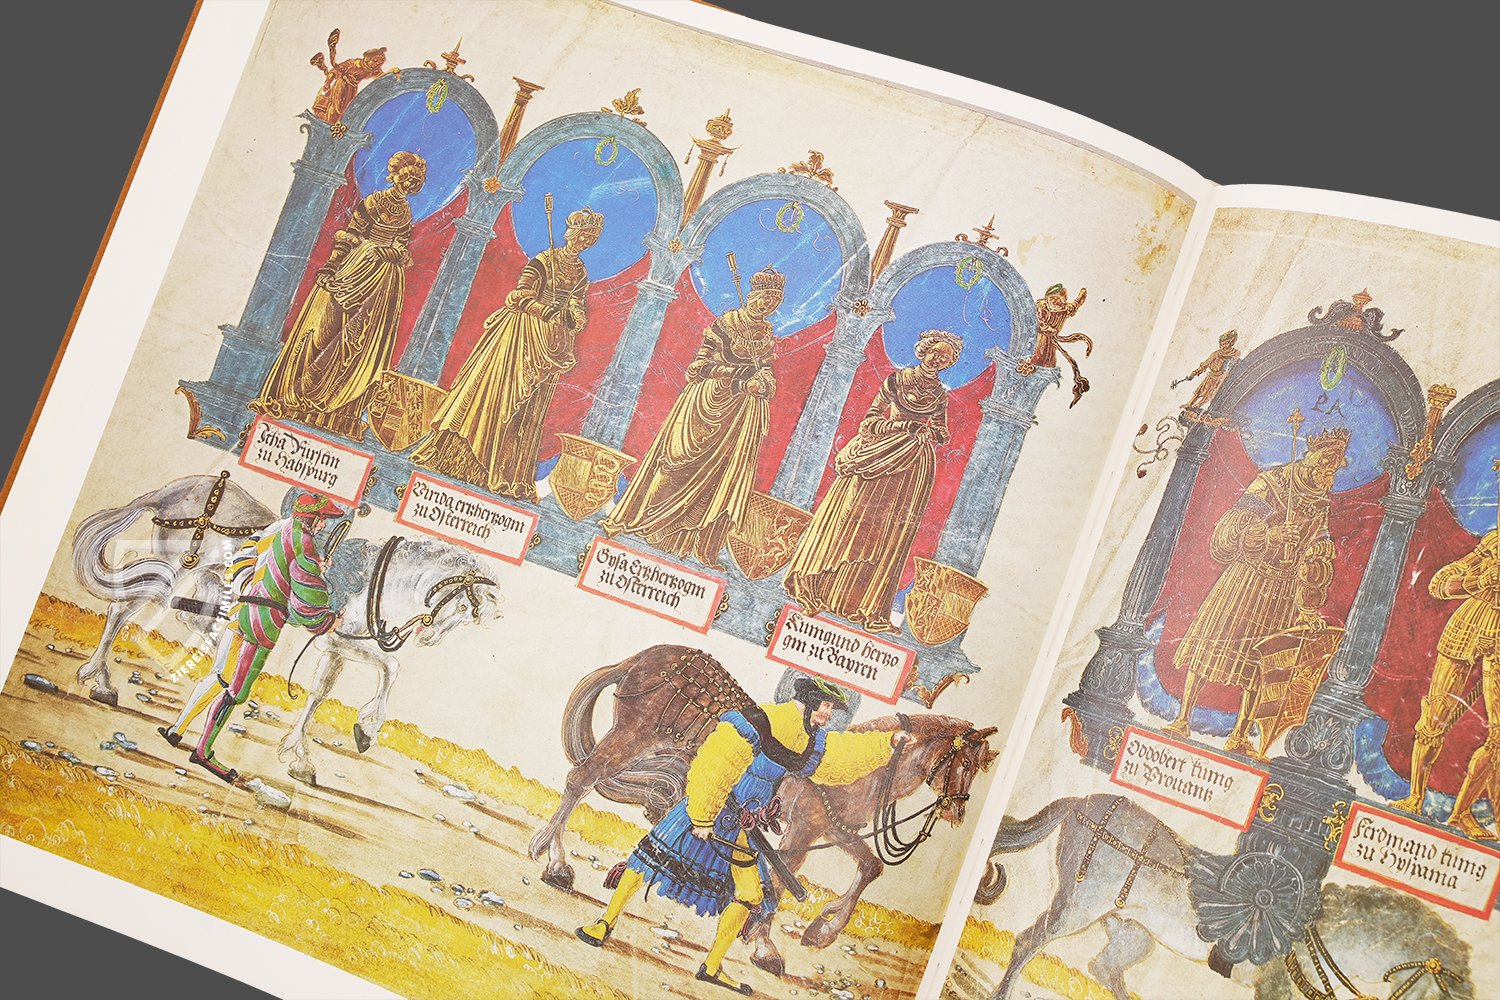 Itha Fürstin
zu Habspurg
Virida ertzhertzogin
zu Osterreich
Gysa Ertzhertzogin
zu Osterreich
Kungund hertzo
gin zu Bayren
PA
Oddobert kunig
zu Prouantz
Ferdinand kunig
zu Hyspania
ZIEREIS FACSIMILES.COM